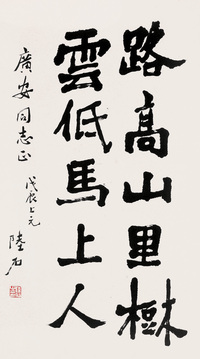 路高山里樹
雲低馬上人
廣安同志正
戊辰上元
陸石